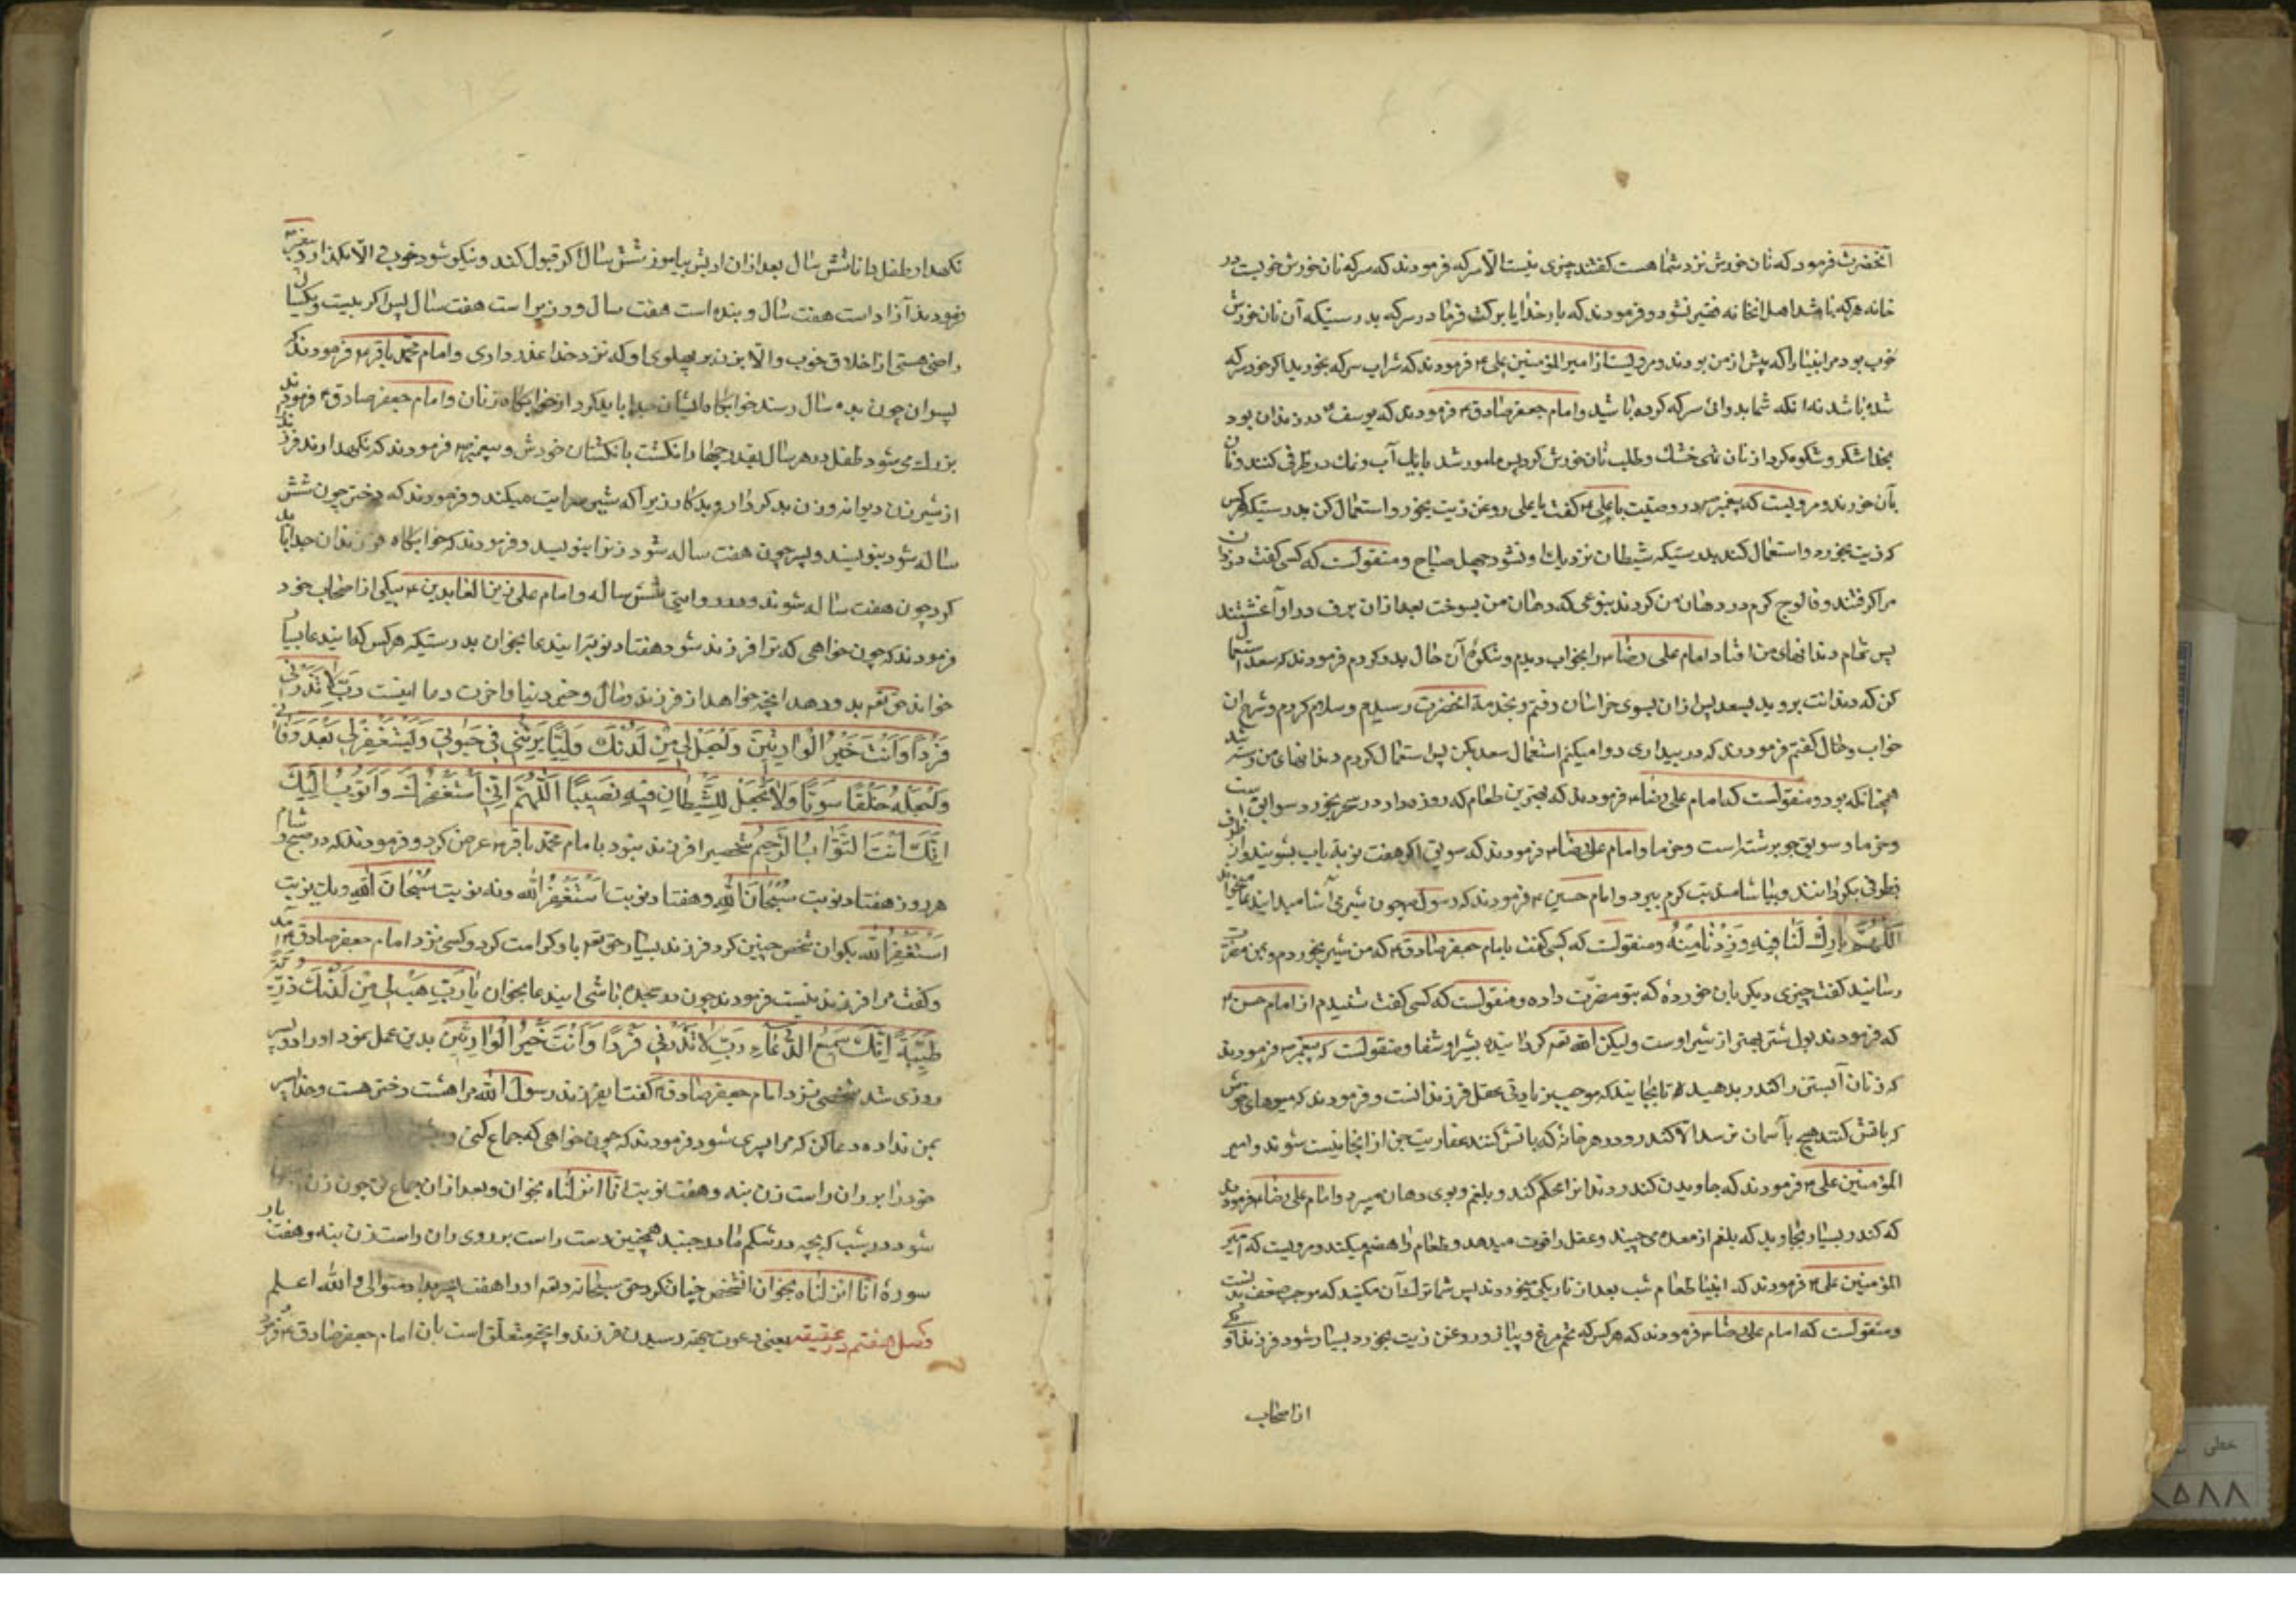 آنحضرت فرمود که نان خورش نزد شما هست گفتند چیزی نیست الا سرکه فرمودند که سرکه نان خورش خوبیست در
خانه هرکه باشد اهل انخانه فقیر نشود و فرمودند که بار خدایا برکت فرما در سرکه بدرستیکه آن نان خورش
خوب بود مر انبیا را که پیش از من بودند و مرویست از امیر المؤمنین علی ع فرمودند که شراب سرکه بخورید اگر خود سرکه
شده باشد نه انکه شما بدوائ سرکه کرده باشید و امام جعفر صادق ع فرمودند که یوسف ع در زندان بود
بخدا شکر و شکوه کرد از نان تهی خشک و طلب نان خورش کرد پس مامور شد باینک آب و نمک در ظرفی کنند و نان
بآن خورند و مرویست که پیغمبر ص در وصیت با علی ع گفت یا علی روغن زیت بخور و استعمال کن بدرستیکه هرکس
که زیت بخورد و استعمال کند بدرستیکه شیطان نزدیك او نشود چهل صباح و منقولست که کسی گفت دزدان
مرا گرفتند و فالوج گرم در دهان من کردند بنوعی که دهان من بسوخت بعد ازان برف در او آغشتند
پس تمام دندانهای من افتاد امام علی رضا ع را بخواب دیدم و شکوۀ آن حال بدو کردم فرمودند که سعد استعمال
کن که دندانت بروید بعد پس ازان بسوی خراسان رفتم و بخدمة انحضرت رسیدم و سلام کردم و شرح ان
خواب و حال گفتم فرمودند که در بیداری دوا میکنم استعمال سعد بکن پس استعمال کردم دندانهای من رسته شد
همچنانکه بود و منقولست که امام علی رضا ع فرمودند که بهترین طعام که روزه دار در سحر بخورد سویق است
و خرما و سویق جو برشته است و خرما و امام علی رضا ع فرمودند که سویق اگر هفت نوبة باب بشویند و از ظرف
بظرفی بگردانند و بیاشامند تب گرم ببرد و امام حسین ع فرمودند که رسول ص چون شیر می آشامید این دعا میخواند
اَللّٰهُمَّ بارِكْ لَنا فیهِ وَزِدْنا مِنْهُ و منقولست که کسی گفت بامام جعفر صادق ع که من شیر بخوردم و بمن مضرت
رسانید گفت چیزی دیگر بان خوردۀ که بتو مضرّت داده و منقولست که کسی گفت شنیدم از امام حسن ع
که فرمودند بول شتر بهتر از شیر اوست ولیکن الله تعه گردانیده بشیر او شفا و منقولست که پیغمبر ص فرمودند
که زنان آبستن را کندر بدهید تا بخایند که موجب زیادتی عقل فرزندانست و فرمودند که میوهای خوش
که باتش کنند هیچ بآسمان نرسد الا کندر و در هر خانه که باتش کنند عفاریت جن از انجا نیست شوند و امیر
المؤمنین علی ع فرمودند که جاویدن کندر دندانرا محکم کند و بلغم و بوی دهان میبرد و امام علی رضا ع فرمودند
که کندر بسیار بجاوید که بلغم از معده می چیند و عقل را قوت میدهد و طعام را هضم میکند و مرویست که امیر
المؤمنین علی ع فرمودند که انبیا طعام شب بعد از تاریکی میخوردند پس شما ترك آن مکنید که موجب ضعف بدنست
و منقولست که امام علی رضا ع فرمودند که هرکس که تخم مرغ و پیاز و روغن زیت بخورد بسیار شود فرزند او و یکی
از اصحاب
نگهدار طفل را تا شش سال بعد ازان ادبش بیاموز شش سال اگر قبول کند و نیکو شود خوب و الا بگذار و پیغمبر ص
فرمودند آزاد است هفت سال و بنده است هفت سال و وزیر است هفت سال پس اگر بیست و یکسال
راضی هستی از اخلاق خوب و الا بزن بر پهلوی او که نزد خدا عذر داری و امام محمد باقر ع فرمودند که
پسران چون بده سال رسند خوابگاه ایشان جدا باید کرد از خوابگاه زنان و امام جعفر صادق ع فرمودند
بزرك می شود طفل در هر سال بقدر چهار انگشت بانگشتان خودش و پیغمبر ص فرمودند که نگهدارند فرزند
از شیر زن دیوانه و زن بد کردار و بدکار زیرا که شیر سرایت میکند و فرمودند که دختر چون شش
ساله شود بنویسند و پسر چون هفت ساله شود و فرمودند که خوابگاه فرزندان جدا باید
کرد چون هفت ساله شوند و در روایتی شش ساله و امام علی زین العابدین ع بیکی از اصحاب خود
فرمودند که چون خواهی که ترا فرزند شود هفتاد نوبة این دعا بخوان بدرستیکه هرکس که این دعا بسیار
خواند حق تعه بدو دهد انچه خواهد از فرزند و مال و خیر دنیا و اخرت دعا اینست رَبِّ لا تَذَرْنی
فَرْدًا وَاَنْتَ خَیْرُ الْوارِثینَ وَاجْعَلْ لی مِنْ لَدُنْكَ وَلِیًّا یَرِثُنی فی حَیوتی وَیَسْتَغْفِرُ لی بَعْدَ وَفاتی
وَاجْعَلْهُ خَلْقًا سَوِیًّا وَلا تَجْعَلْ لِلشَّیْطانِ فیهِ نَصیبًا اَللّٰهُمَّ اِنّی اَسْتَغْفِرُكَ وَاَتُوبُ اِلَیْكَ
اِنَّكَ اَنْتَ التَّوّابُ الرَّحیمُ شخصیرا فرزند نبود با امام محمد باقر ع عرض کرد و فرمودند که در صبح و شام
هر روز هفتاد نوبت سُبْحانَ اللهِ و هفتاد نوبت اَسْتَغْفِرُ الله و نه نوبت سُبْحانَ اللهِ و یك نوبت
اَسْتَغْفِرُ الله بگو ان شخص چنین کرد فرزند بسیار حق تعه باو کرامت کرد و کسی نزد امام جعفر صادق ع آمد
و گفت مرا فرزند نیست فرمودند چون در سجده باشی این دعا بخوان یا رَبِّ هَبْ لی مِنْ لَدُنْكَ ذُرِّیَّةً
طَیِّبَةً اِنَّكَ سَمیعُ الدُّعاءِ رَبِّ لا تَذَرْنی فَرْدًا وَاَنْتَ خَیْرُ الْوارِثینَ بدین عمل نمود او را دو پسر
روزی شد شخصی نزد امام جعفر صادق ع گفت ایفرزند رسول الله مرا هشت دختر هست و خدا پسر
بمن نداده دعا کن که مرا پسری شود فرمودند که چون خواهی که جماع کنی
خود را بر ران راست زن بنه و هفت نوبت انا انزلناه بخوان و بعد ازان جماع کن چون زن
شود در شب که بچه در شکم مادر جنبد همچنین دست راست بر روی ران راست زن بنه و هفت بار
سورۀ انا انزلناه بخوان انشخص چنان کرد حق سبحانه و تعه او را هفت پسر بداد متوالی و الله اعلم
فصل هفتم در عقیقه یعنی دعوت جهة رسیدن فرزند و انچه متعلق است بان امام جعفر صادق ع فرمود